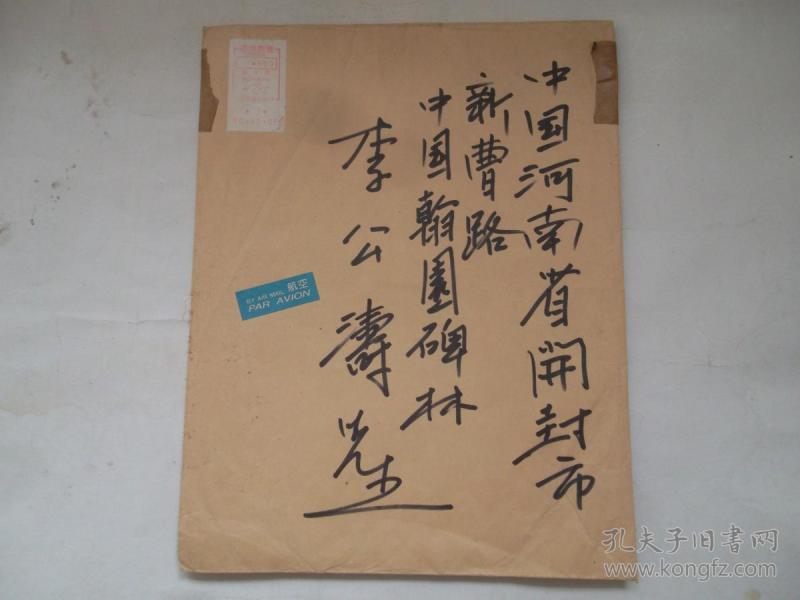 中国河南省開封市
新曹路
中国翰園碑林
李公濤先生
BY AIR MAIL 航空
PAR AVION
孔夫子旧书网
www.kongfz.com